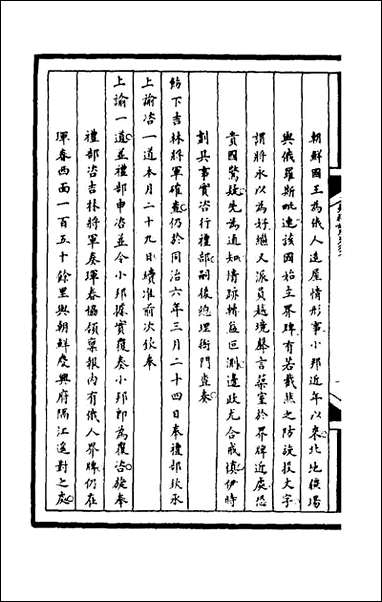 朝鮮國王為俄人造屋情形事小邦近年以來北地候
與俄羅斯毗連該國始立界牌有若截然之防旋投文字
謂將永以為好繼又派員越境聲言築室於界牌近處恐
貴國驚疑先為通知情跡轉益叵測邊政尤合戒慎伊時
劃具事實咨行禮部嗣後總理衙門查奏
飭下吉林將軍確查仍於同治六年三月二十四日奉禮部欽承
上諭咨一道本月二十九日續准前次欽奉
上諭一道並禮部申咨並令小邦據實覆奏小邦即為覆咨旋奉
禮部咨吉林將軍奏琿春協領稟報內有俄人界牌仍在
琿春西面一百五十餘里與朝鮮慶興府隔江遙對之處